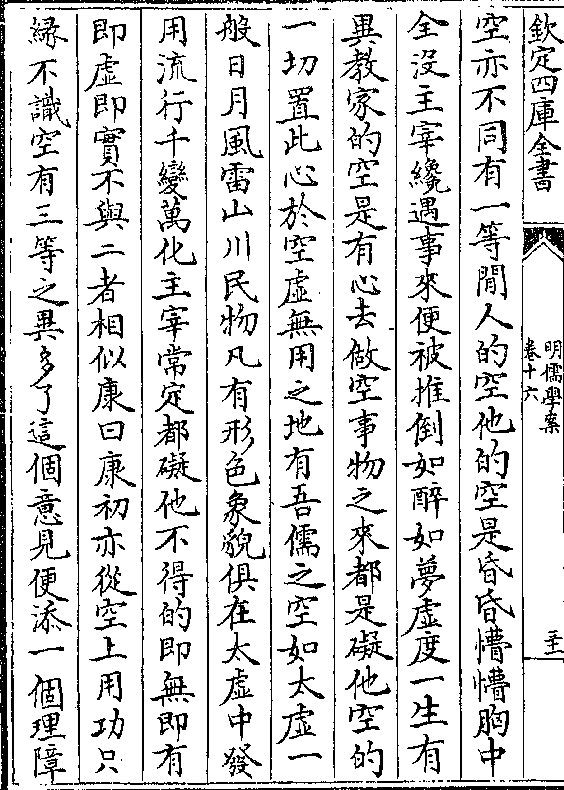 欽定四庫全書
明儒學案
卷十六
空亦不同有一等閒人的空他的空是昏昏懵懵胸中
全沒主宰纔遇事來便被推倒如醉如夢虛度一生有
異教家的空是有心去做空事物之來都是礙他空的
一切置此心於空虛無用之地有吾儒之空如太虛一
般日月風雷山川民物凡有形色象貌俱在太虛中發
用流行千變萬化主宰常定都礙他不得的即無即有
即虛即實不與二者相似康曰康初亦從空上用功只
緣不識空有三等之異多了這個意見便添一個理障